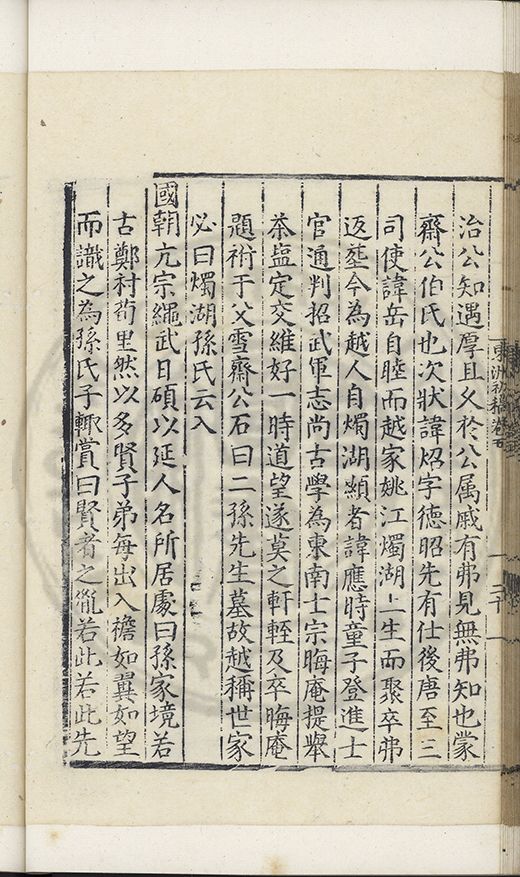 治公知遇厚且久於公属戚有弗見無弗知也蒙
齋公伯氏也次狀諱炤字德昭先有仕後唐至三
司使諱岳自睦而越家姚江燭湖上生而聚卒弗
返塟今為越人自燭湖顯者諱應時童子登進士
官通判招武軍志尚古學為東南士宗晦庵提舉
茶盐定交維好一時道望遂莫之軒輊及卒晦庵
題祔于父雪齋公石曰二孫先生墓故越稱世家
必曰燭湖孫氏云入
國朝亢宗繩武日碩以延人名所居處曰孫家境若
古鄭村荀里然以多賢子弟每出入襜如翼如望
而識之為孫氏子輒賞曰賢者之胤若此若此先